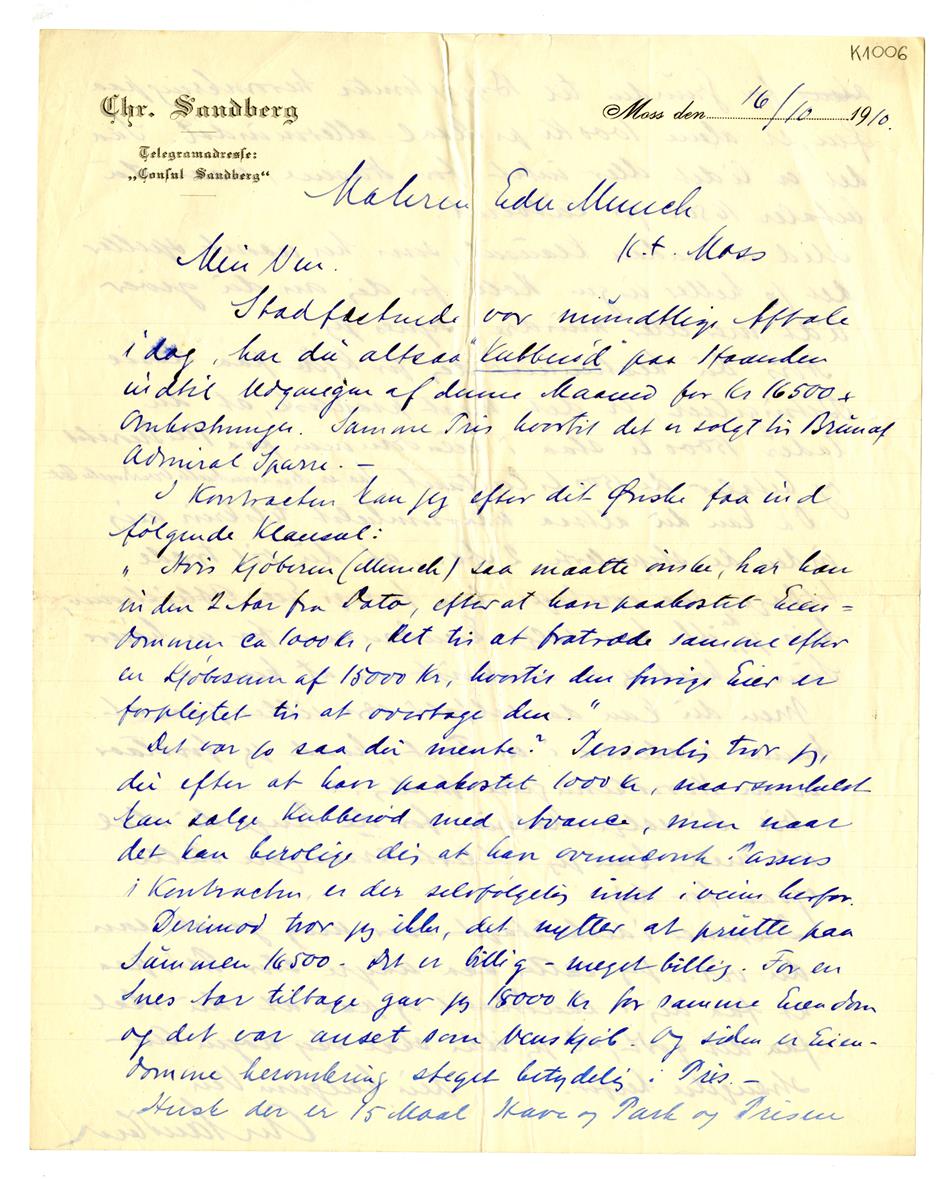 K1006
Chr. Sandberg
Moss den 16/10 1910.
Telegramadresse:
„Consul Sandberg“
Maleren Edv Munch
K.t. Moss
Min Ven.
Stadfæstende vor mundtlige Aftale
i dag, har du altsaa "Kubberød" paa Haanden
indtil Udgangen af denne Maaned for Kr 16500 +
Omkostninger. Samme Pris hvortil det er solgt til
Admiral Sparre. –
I Kontracten kan jeg efter dit Ønske faa ind
følgende Klausul:
„Hvis Kjøberen (Munch) saa maatte ønske, har han
inden 2 Aar fra Dato, efterat han paakostet Eien=
dommen ca 1000 Kr, Ret til at fratræde samme efter
en Kjøbesum af 15000 Kr, hvortil den forrige Eier er
forpligtet til at overtage den."
Det var jo saa du mente? Personlig tror jeg,
du efter at have paakostet 1000 Kr, naarsomhelst
kan sælge Kubberød med Avance, men naar
det kan berolige dig at have ovennævnte Passus
i Kontracten er der selvfølgelig intet iveien herfor.
Derimod tror jeg ikke, det nytter at prutte paa
Summen 16500 - Det er billig - meget billig. For en
Snes Aar tilbage gav jeg 18000 Kr for samme Eiendom
og det var anset som Venskjøb. Og siden er Eien-
domme heromkring steget betydelig i Pris. –
Husk der er 15 Maal Have og Park og Prisen